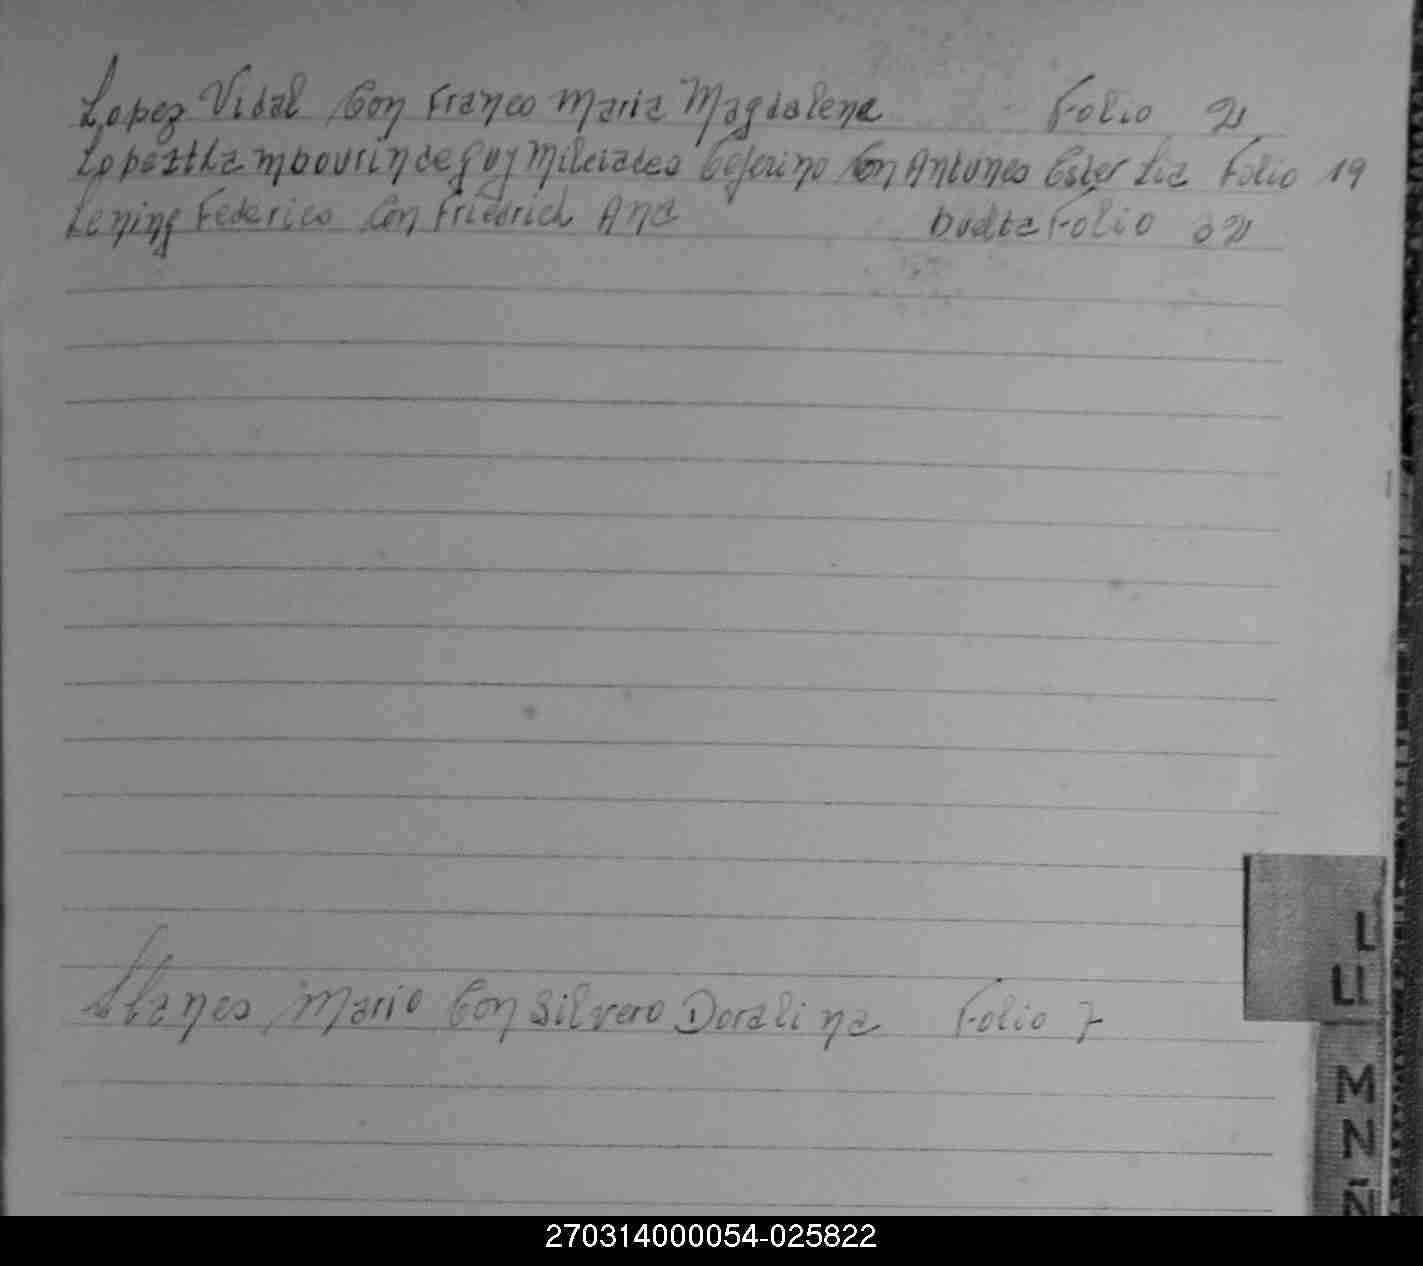 Lopez Vidal Con Franco Maria Magdalena Folio 2
Milciades Ceferino Con Antunes Ester Lia Folio 19
Lening Federico Con Friedrich Ana Buelta Folio 32
L
LL
Llanes Mario Con Silvero Doralina Folio 7
M
N
Ñ
270314000054-025822